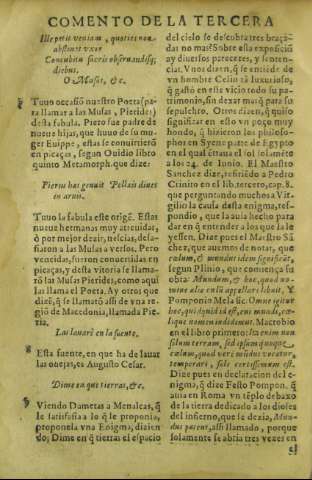 COMENTO DE LA TERCERA
Ille petit veniam, quoties non
abstinet vxor
Concubitu sacris obseruandisq;
diebus.
O Musas, &c.
Tuuo occasiõ nuestro Poeta (pa
ra llamar a las Musas, Pierides)
desta fabula. Piero fue padre de
nueue hijas, que huuo de su mu-
ger Euippe, estas se conuirtierõ
en picaças, segun Ouidio libro
quinto Metamorph. que dize:
Pierus has genuit Pellæis diues
in aruis.
Tuuo la fabula este origẽ. Estas
nueue hermanas muy atreuidas,
ò por mejor dezir, necias, desa-
fiaron a las Musas a versos. Pero
vencidas, fueron conuertidas en
picaças, y desta vitoria se llama-
rõ las Musas Pierides, como aqui
las llama el Poeta. Ay otros que
dizẽ, q̃ se llamarõ assi de vna re-
gió de Macedonia, llamada Pie-
ria.
Las lauarè en la fuente.
Esta fuente, en que ha de lauar
las ouejas, es Augusto Cesar.
Dime en que tierras, &c.
Viendo Dametas a Menalcas, q̃
le satisfizia a lo q̃ le proponia,
proponela vna Enigma, dizien
do; Dime en q̃ tierras el espacio
del cielo se descubra tres braça-
das no mas? Sobre esta exposiciõ
ay diuersos pareceres, y senten-
cias. Vnos dizen, q̃ se entiẽde de
vn hombre Celio tã luxurioso,
q̃ gastò en este vicio todo su pa-
trimonio, sin dexar mas q̃ para su
sepulchro. Otros dizen, q̃ quiso
significar en esto vn poço muy
hondo, q̃ hizieron los philoso-
phos en Syene parte de Egypto
en el qual ẽtraua el sol solamẽte
a los 24. de Iunio. El Maestro
Sanchez dize, refiriẽdo a Pedro
Crinito en el lib. tercero, cap. 8.
que preguntando muchos a Vir-
gilio la causa desta enigma, res-
pondio, que la auia hecho para
dar en q̃ entender a los que la le
yessen. Dize pues el Maestro Sã
chez, que auemos de notar, que
cœlum, & mundus idem significãt,
segun Plinio, que comiença su
obra: Mundum, & hoc, quod no-
mine alio cœlũ appellari libuit. Y
Pomponio Mela sic. Omne igitur
hoc, quidquid id est, cui mundi, cœ-
lique nomen indidimus. Macrobio
en el libro primero: Ita enim non
solum terram, sed ipsum quoque
cœlum, quod verè mũdus vocatur,
temperari, sole certissimum est.
Dize pues en declaracion del e-
nigma, q̃ dize Festo Pompon. q̃
auia en Roma vn tẽplo debaxo
de la tierra dedicado a los dioses
del infierno, que le dezia, Mun-
dus patent, assi llamado, porque
solamente se abria tres vezes en